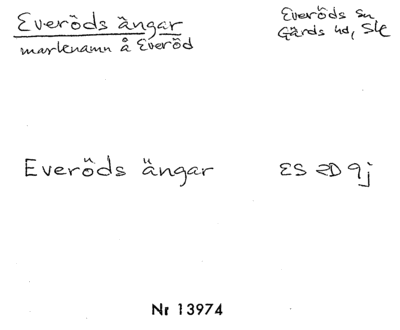 Everöds ängar
marknamn å Everöd
Everöds sn
Gärds hd, Sk
Everöds ängar
ES 2D 9j
Nr 13974